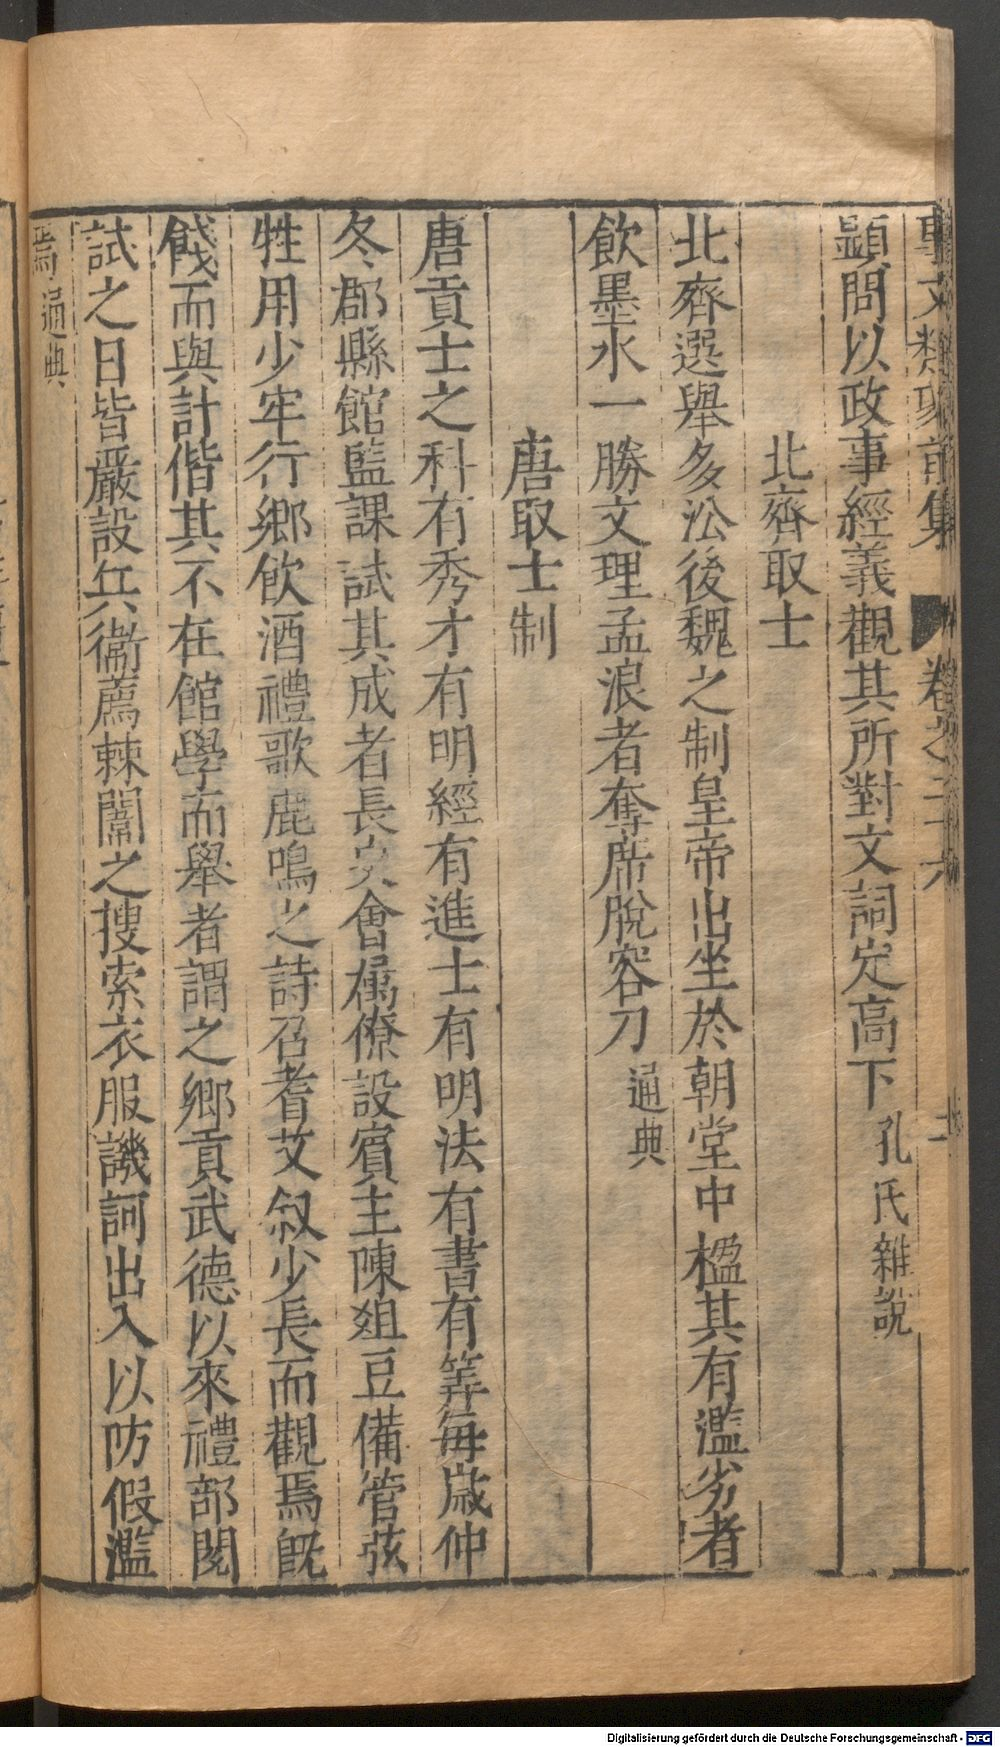 事文類聚前集 卷之二十六
顕問以政事經義觀其所對文詞定高下 孔氏雜說
北齊取士
北齊選舉多㳂後魏之制皇帝出坐於朝堂中楹其有濫劣者
飲墨水一勝文理孟浪者奪席脫容刀 通典
唐取士制
唐貢士之科有秀才有明經有進士有明法有書有筭每歲仲
冬郡縣館監課試其成者長吏會属僚設賓主陳俎豆備管弦
牲用少牢行鄉飲酒禮歌鹿鳴之詩召耆艾叙少長而觀焉旣
餞而與計偕其不在館學而舉者謂之鄉貢武德以來禮部閱
試之日皆嚴設兵衛薦棘闈之搜索衣服譏訶出入以防假濫
焉 通典
Digitalisierung gefördert durch die Deutsche Forschungsgemeinschaft - DFG